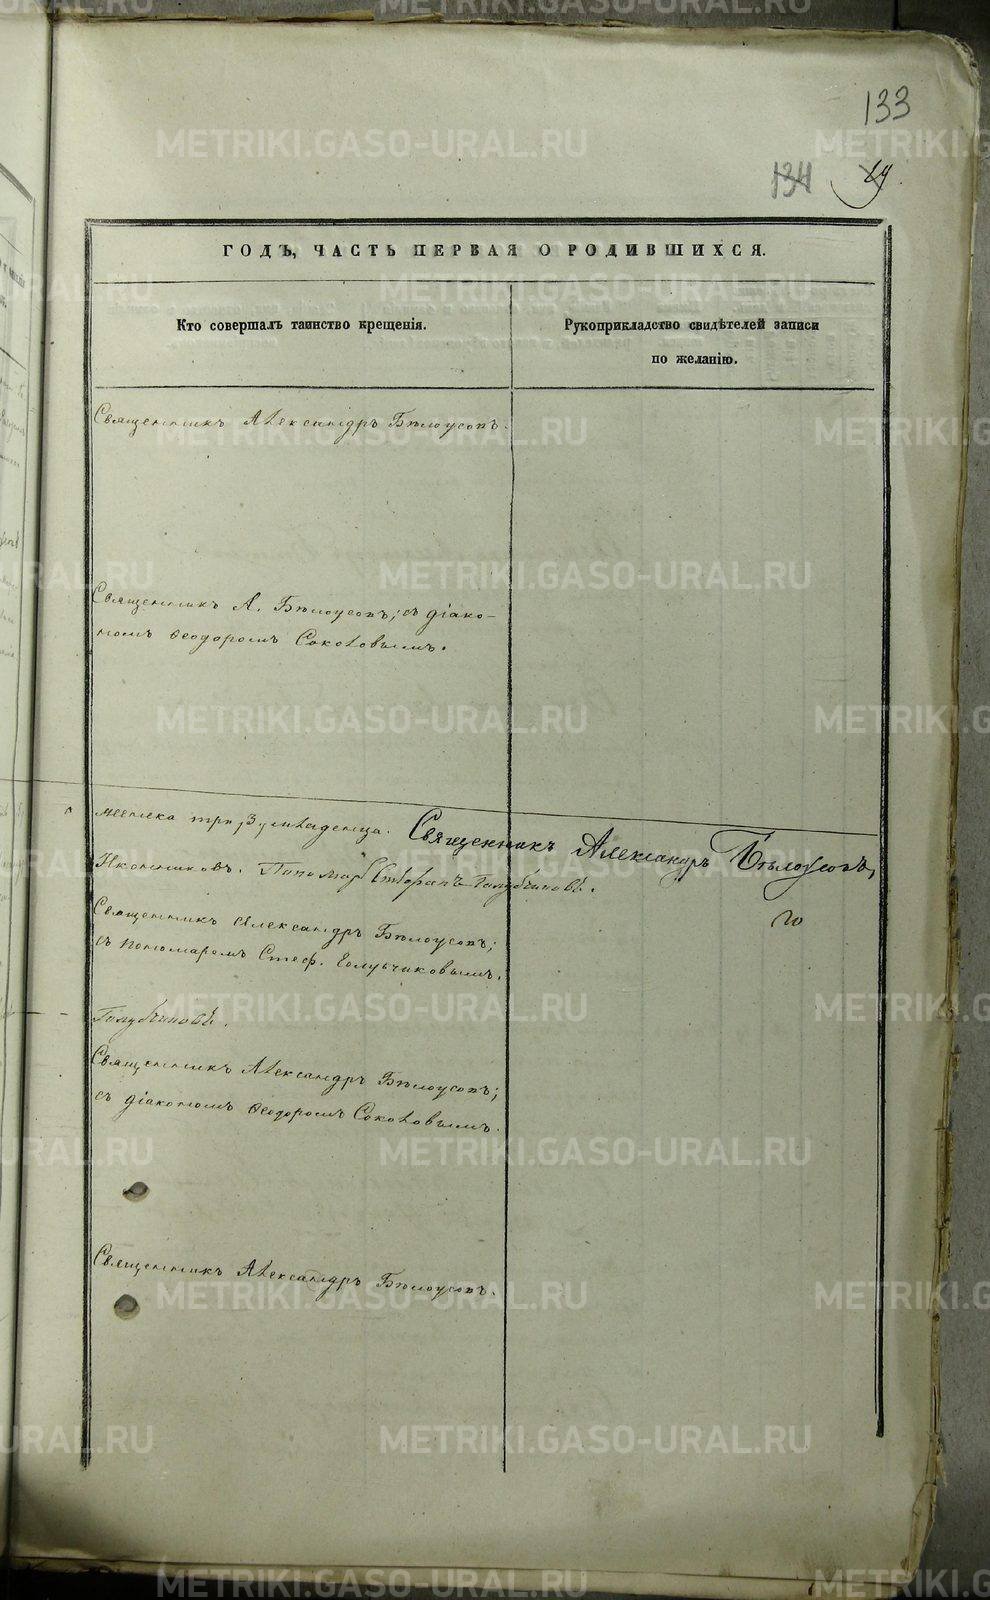 133
134
ГОДЪ, ЧАСТЬ ПЕРВАЯ О РОДИВШИХСЯ.
Кто совершалъ таинство крещенія.
Рукоприкладство свидѣтелей записи
по желанію.
Священникъ Александръ Бѣлоусовъ.
Священникъ А. Бѣлоусовъ; съ діако-
номъ Ѳеодоромъ Соколовымъ.
женска три, 3, младенца. Священникъ Александръ Бѣлоусовъ,
Иконниковъ. Пономарь Стефанъ Голубчиковъ.
Священникъ Александръ Бѣлоусовъ;
съ пономаремъ Стеф. Голубчиковымъ.
Голубчиковъ.
Священникъ Александръ Бѣлоусовъ;
съ діакономъ Ѳеодоромъ Соколовымъ.
Священникъ Александръ Бѣлоусовъ.
METRIKI.GASO-URAL.RU